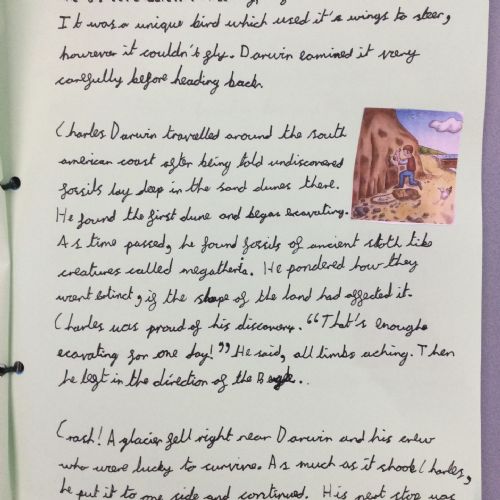 It was a unique bird which used it's wings to steer,
however it couldn't fly. Darwin examined it very
carefully before heading back.
Charles Darwin travelled around the south
american coast after being told undiscovered
fossils lay deep in the sand dunes there.
He found the first dune and began excavating.
As time passed, he found fossils of ancient sloth like
creatures called megatheria. He pondered how they
went extinct, if the shape of the land had affected it.
Charles was proud of his discovery. "That's enough
excavating for one day!" He said, all limbs aching. Then
he left in the direction of the Beagle..
Crash! A glacier fell right near Darwin and his crew
who were lucky to survive. As much as it shook Charles,
he put it to one side and continued. His next stop was